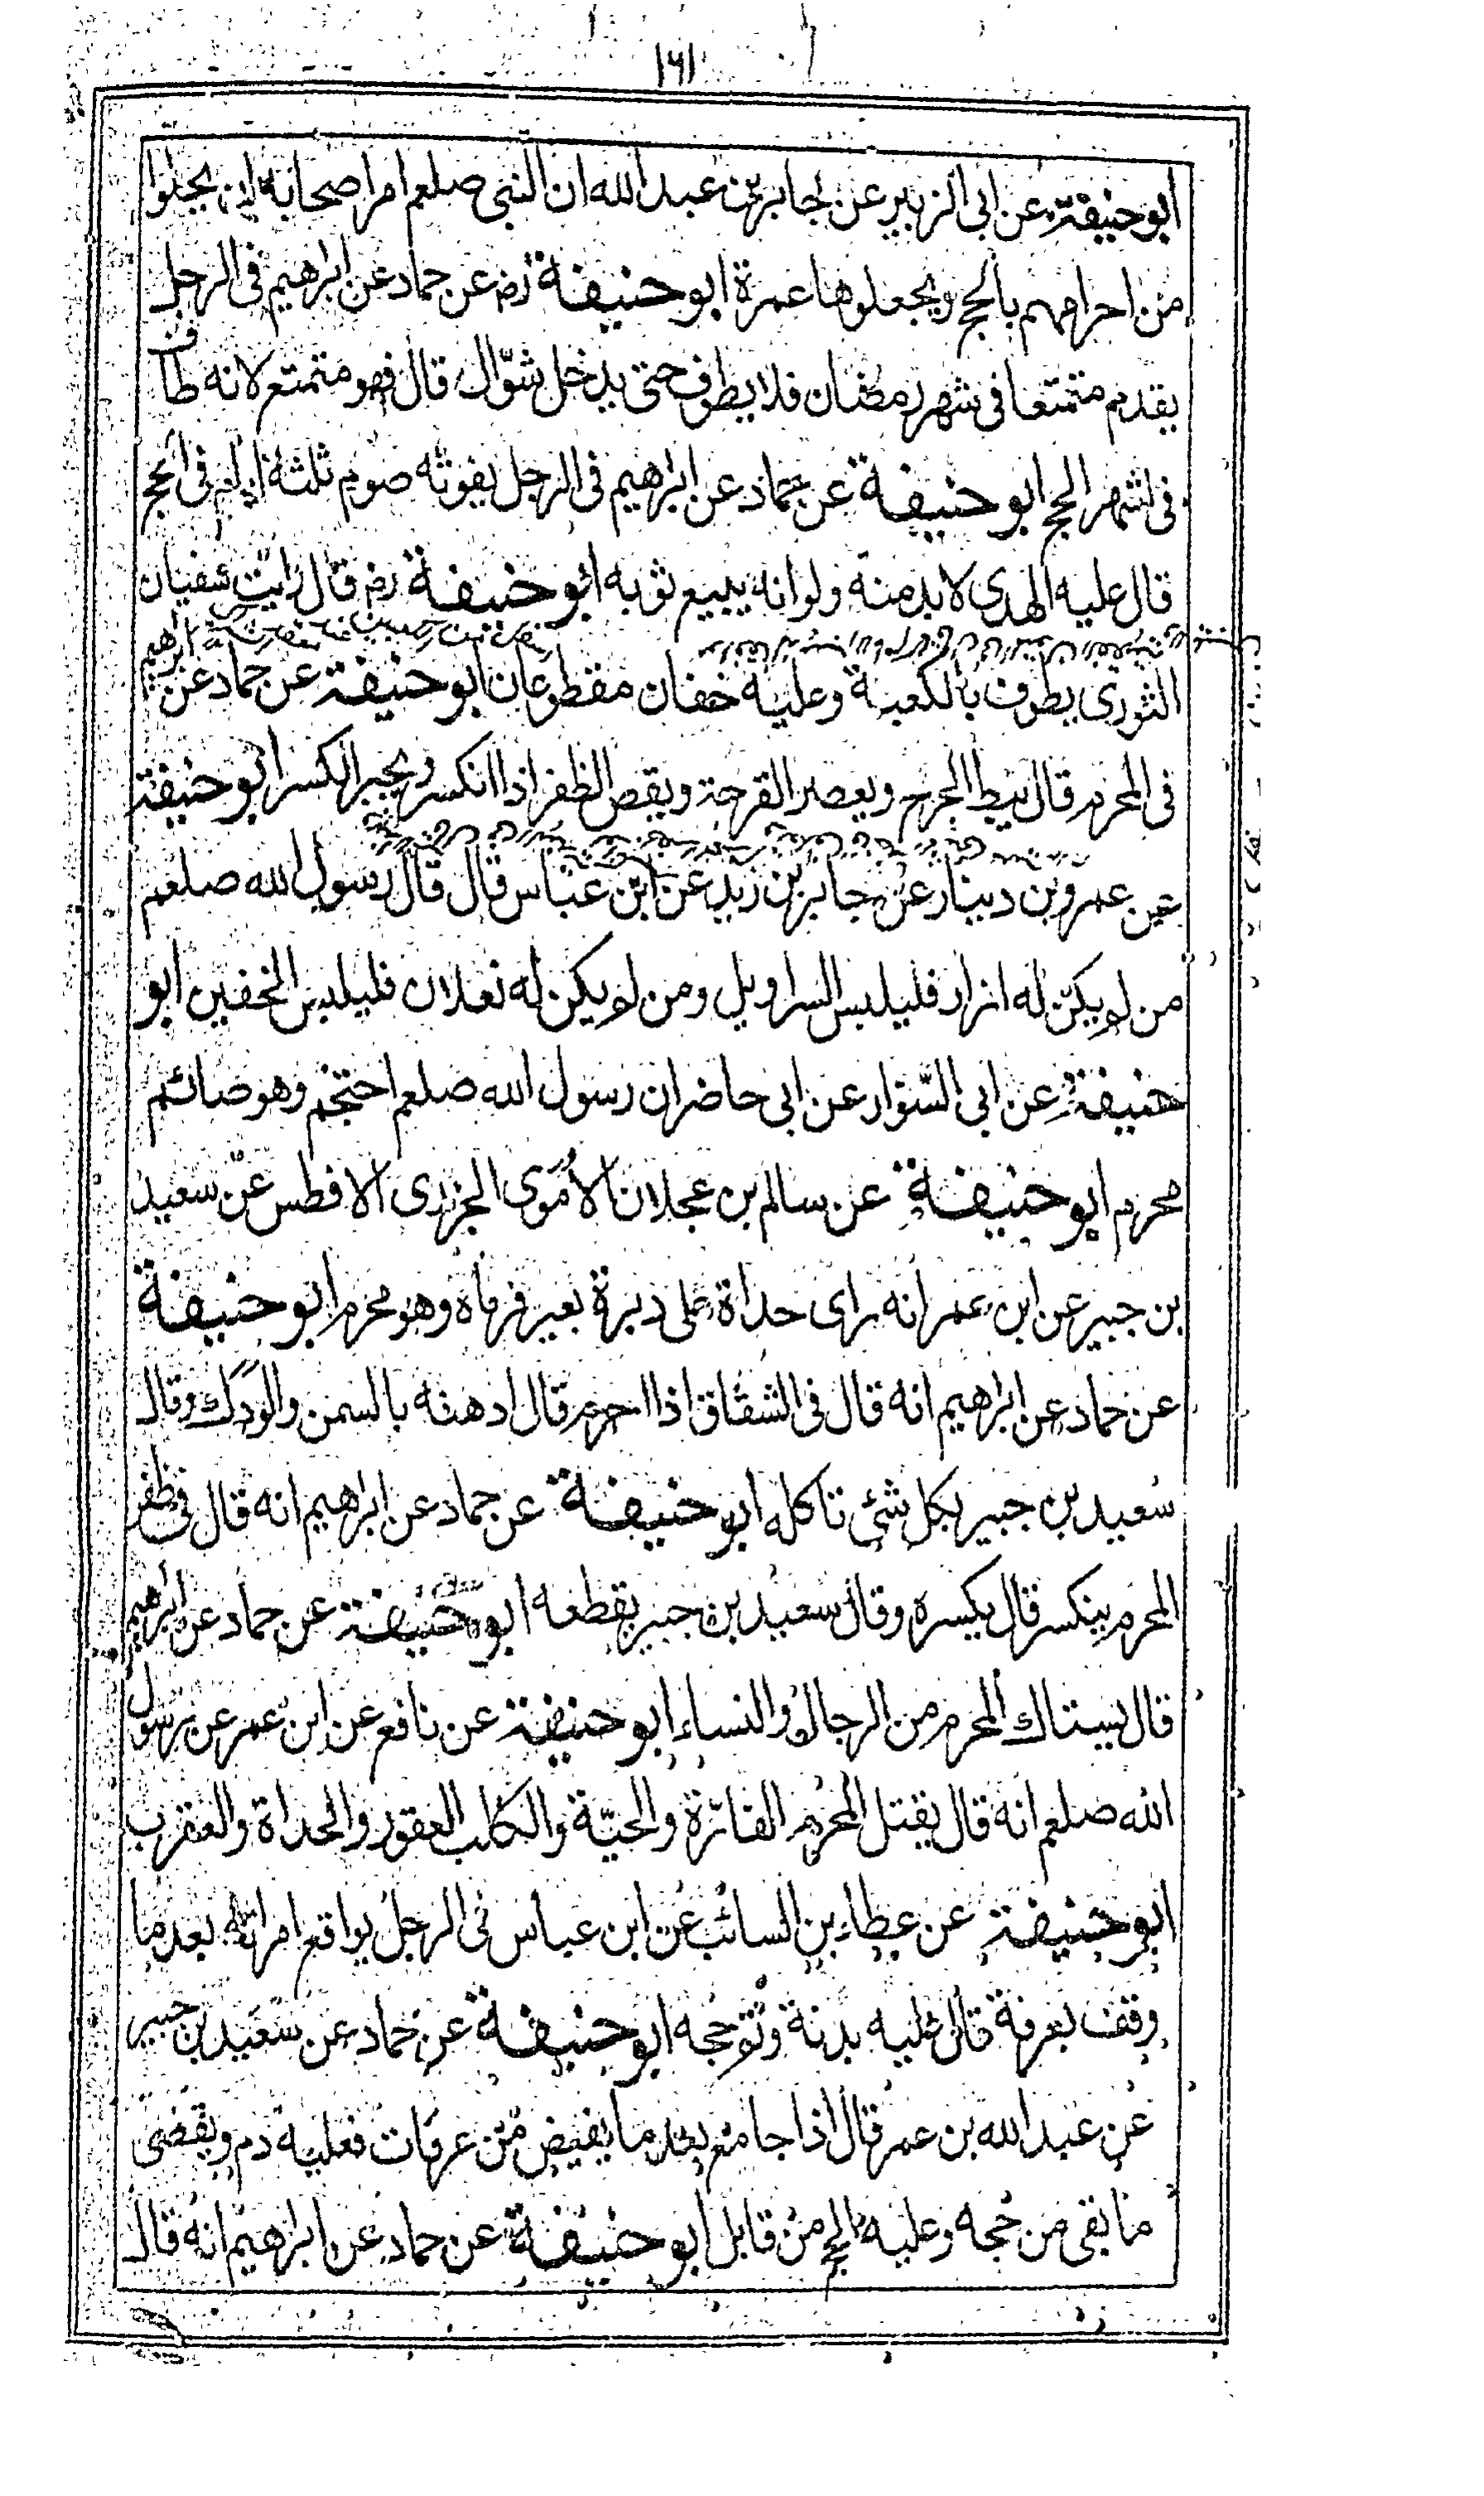 ١٦١
ابو حنيفة عن ابى الزبير عن جابر بن عبد الله ان النبى صلعم امر اصحابه ان يحلوا
من احرامهم بالحج ويجعلوها عمرة ابو حنيفة رض عن حماد عن ابراهيم فى الرجل
يقدم متمتعا فى شهر رمضان فلا يطوف حتى يدخل شوّال قال فهو متمتع لانه طاف
فى اشهر الحج ابو حنيفة عن حماد عن ابراهيم فى الرجل يفوته صوم ثلثة ايام فى الحج
قال عليه الهدى لا بد منه ولو انه يبيع ثوبه ابو حنيفة رض قال رايت سفيان
الثورى يطوف بالكعبة وعليه خفان مقطوعان ابو حنيفة عن حماد عن ابراهيم
فى المحرم قال يبط الجرح ويعصر القرحة ويقص الظفر اذا انكسر ويجبر الكسر ابو حنيفة
عن عمرو بن دينار عن جابر بن زيد عن ابن عباس قال قال رسول الله صلعم
من لم يكن له ازار فليلبس السراويل ومن لم يكن له نعلان فليلبس الخفين ابو
حنيفة عن ابى السّوار عن ابى حاضر ان رسول الله صلعم احتجم وهو صائم
محرم ابو حنيفة عن سالم بن عجلان الاُمَوى الجزرى الافطس عن سعيد
بن جبير عن ابن عمر انه راى حداة على دبرة بعير فرماه وهو محرم ابو حنيفة
عن حماد عن ابراهيم انه قال فى الشقاق اذا احرم قال ادهنه بالسمن والوَدَك وقال
سعيد بن جبير بكل شئ تاكله ابو حنيفة عن حماد عن ابراهيم انه قال فى ظفر
المحرم ينكسر قال يكسره وقال سعيد بن جبير يقطعه ابو حنيفة عن حماد عن ابراهيم
قال يستاك المحرم من الرجال والنساء ابو حنيفة عن نافع عن ابن عمر عن رسول
الله صلعم انه قال يقتل المحرم الفارة والحيّة والكلب العقور والحداة والعقرب
ابو حنيفة عن عطاء بن السائب عن ابن عباس فى الرجل يواقع امراته بعد ما
وقف بعرفة قال عليه بدنة وتم حجه ابو حنيفة عن حماد عن سعيد بن جبير
عن عبد الله بن عمر قال اذا جامع بعد ما يفيض من عرفات فعليه دم ويقضى
ما بقى من حجه وعليه الحج من قابل ابو حنيفة عن حماد عن ابراهيم انه قال